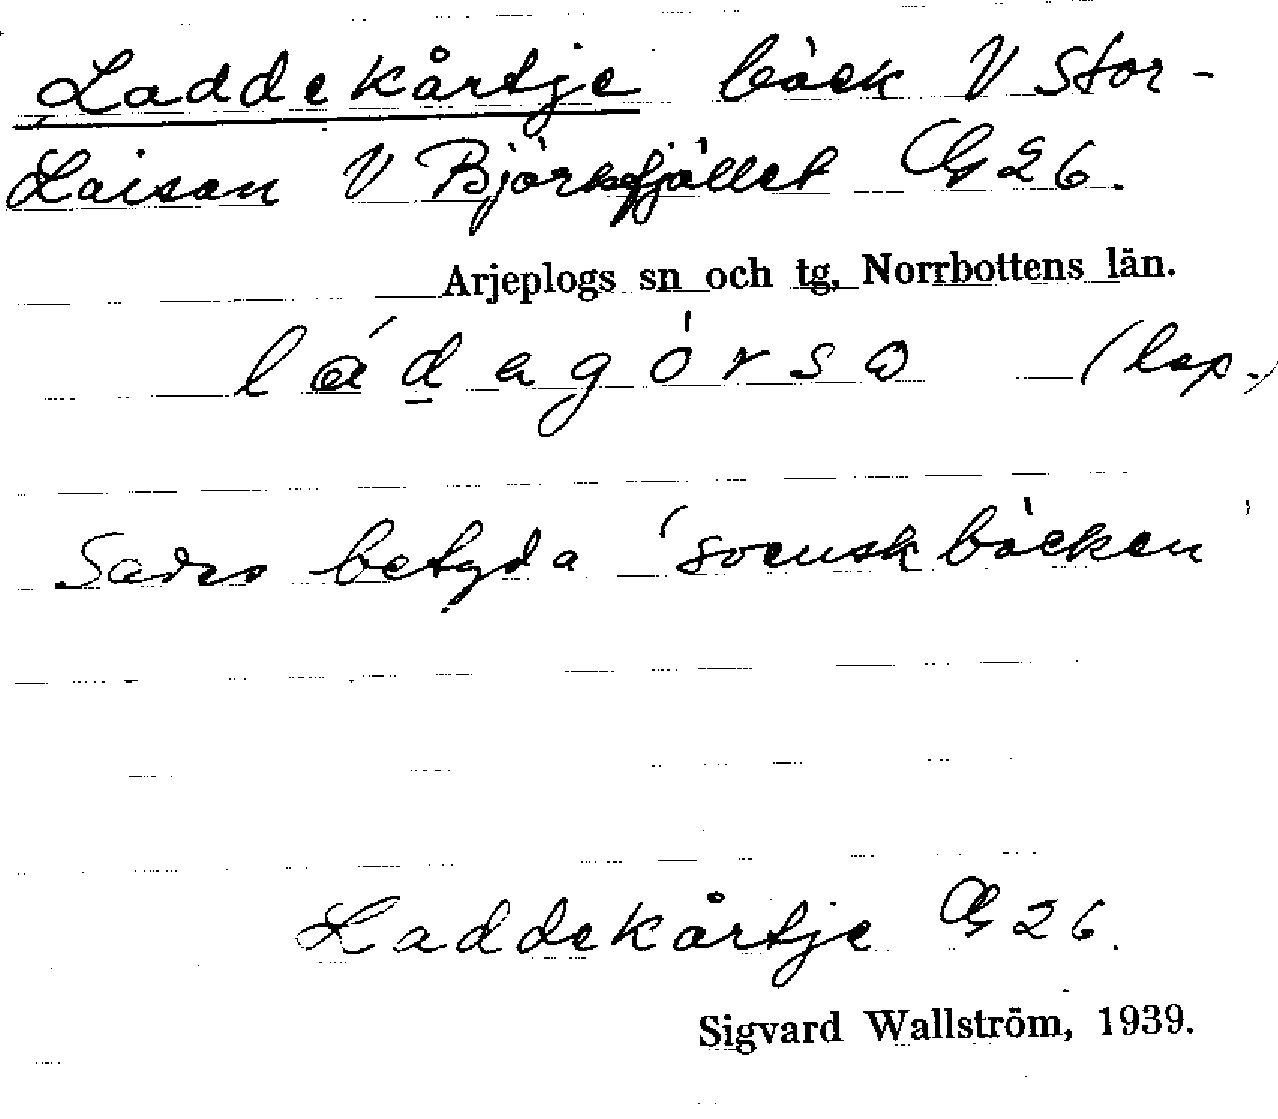 Laddekårtje bäck V Stor-
Laisan V Björkfjället G 26.
Arjeplogs sn och tg, Norrbottens län.
láḏagórsa (lap.)
Sades betyda 'svenskbäcken'
Laddekårtje G 26.
Sigvard Wallström, 1939.